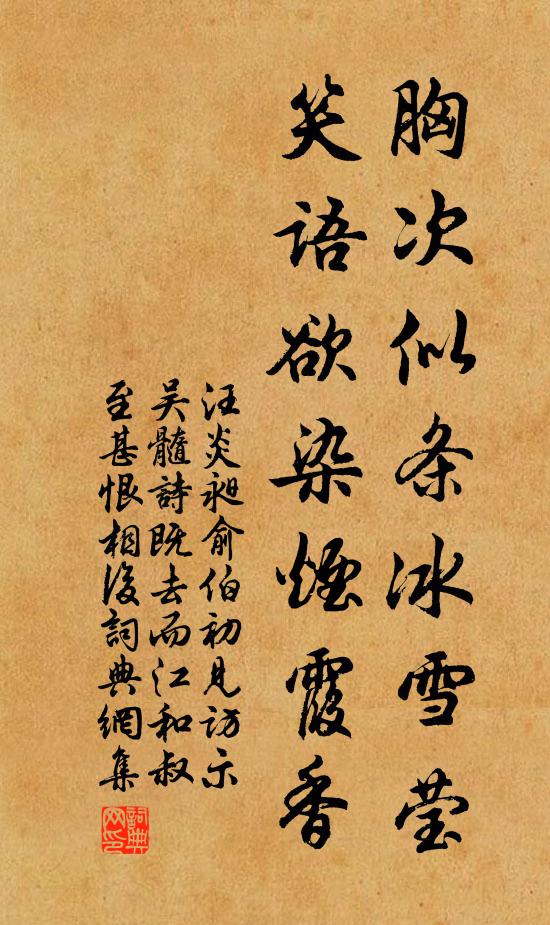 胸次似条冰雪莹
笑语欲染烟霞香
汪炎昶俞伯初见访示
吴髓诗既去而江和叔
至甚恨相后词典网集
词典网印